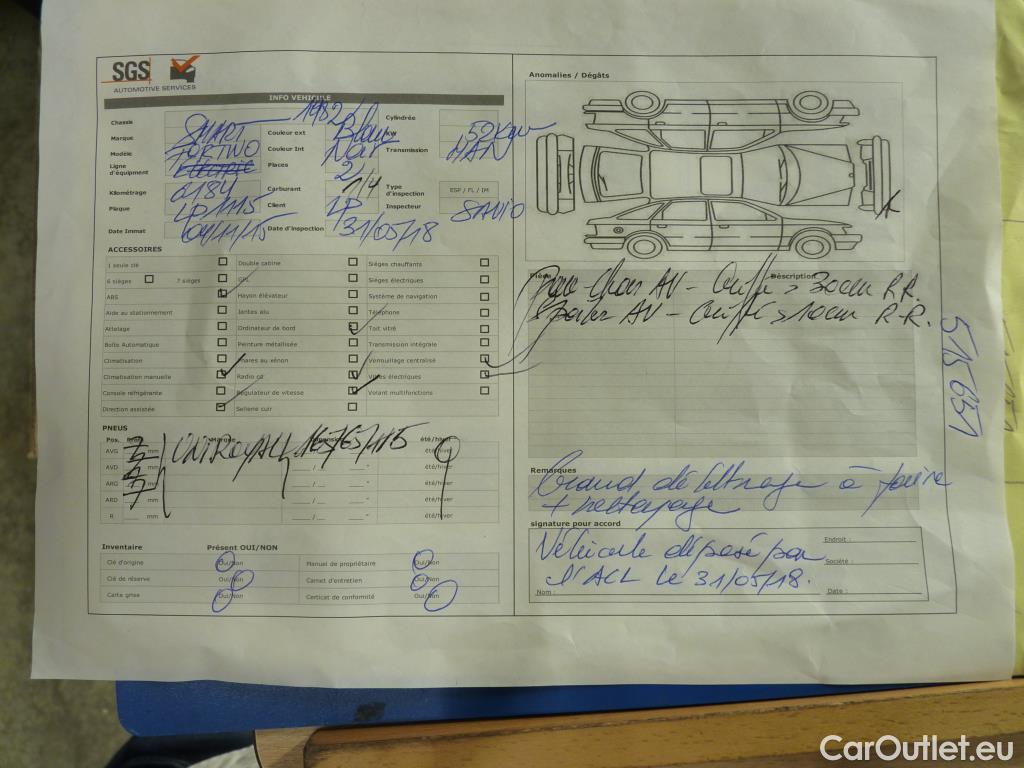 SGS
AUTOMOTIVE SERVICES
INFO VEHICULE
Chassis 1982 Cylindrée
Marque SMART Couleur ext Blanc KW 52Kw
Modèle FORTWO Couleur Int Noir Transmission MAN
Ligne d'équipement Places 2
Kilométrage 6184 Carburant 1/4 Type d'inspection ESP / FL / IM
Plaque LP1115 Client LP Inspecteur SAVIO
Date Immat 04/11/15 Date d'inspection 31/05/18
ACCESSOIRES
1 seule clé Double cabine Sièges chauffants
6 sièges 7 sièges GPL Sièges électriques
ABS Hayon élévateur Système de navigation
Aide au stationnement Jantes alu Téléphone
Attelage Ordinateur de bord Toit vitré
Boîte Automatique Peinture métallisée Transmission intégrale
Climatisation Phares au xénon Verrouillage centralisé
Climatisation manuelle Radio cd Vitres électriques
Console réfrigérante Régulateur de vitesse Volant multifonctions
Direction assistée Sellerie cuir
PNEUS
Pos. Marque Dimension été/hiver
AVG 7 mm UNIROYAL 165/65/15 été/hiver
AVD 7 mm été/hiver
ARG 7 mm été/hiver
ARD 7 mm été/hiver
R mm été/hiver
Inventaire Présent OUI/NON
Clé d'origine Oui/Non Manuel de propriétaire Oui/Non
Clé de réserve Oui/Non Carnet d'entretien Oui/Non
Carte grise Oui/Non Certicat de conformité Oui/Non
Anomalies / Dégâts
Pièce Description
Pare-Chocs AV - Griffé > 30cm R.R.
AV - Griffé > 10cm R-R.
515651
Remarques
Grand débitrage à faire
+ nettoyage
signature pour accord
Véhicule déposé par
l'ACL le 31/05/18.
Endroit :
Société :
Nom :
Date :
CarOutlet.eu